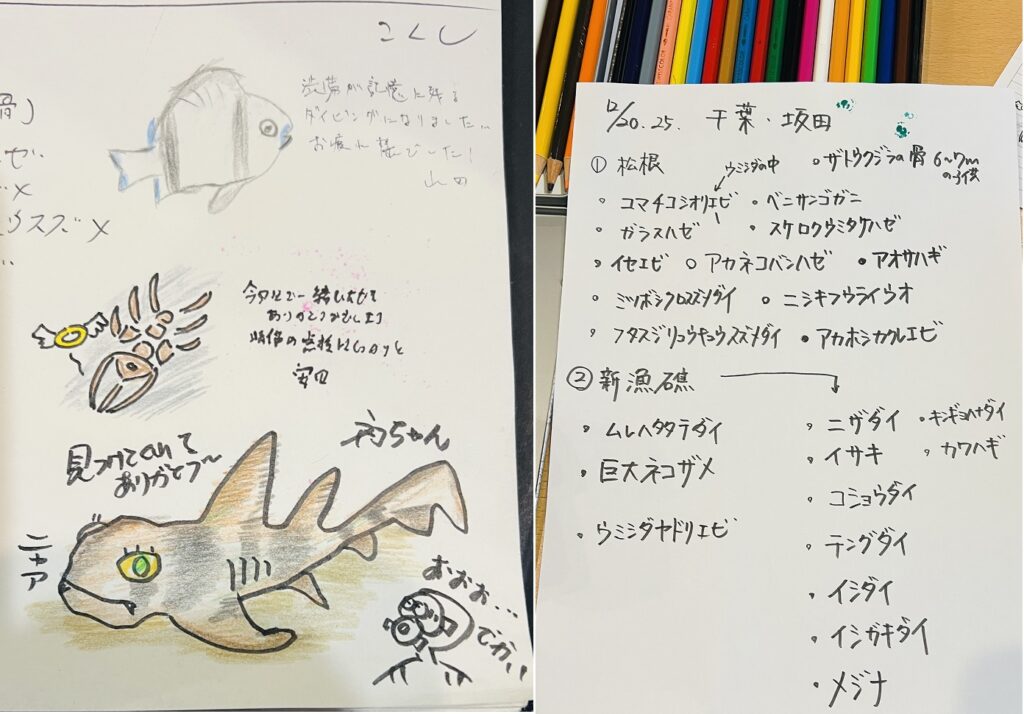 骨)
ゼ
メ
スズメ
こくし
渋滞が記憶に残る
ダイビングになりました…
お疲れ様でした!
山田
今日はご一緒いただき
ありがとうございます
安田
見つけてくれて
ありがとう〜
ネコちゃん
ニャア
おおお…
でかい
12/20.25. 千葉・坂田
① 松根
ウミシダの中
・ザトウクジラの骨 6〜7mの子供
・コマチコシオリエビ ・ベニサンゴガニ
・ガラスハゼ ・スケロクウミタケハゼ
・イセエビ ○アカネコバンハゼ ・アオサハギ
・ミツボシクロスズメダイ ○ニシキフウライウオ
・フタスジリュウキュウスズメダイ ・アカホシカクレエビ
② 新漁礁
・ムレハタタテダイ
・巨大ネコザメ
・ウミシダヤドリエビ
・ニザダイ ・キンギョハナダイ
・イサキ ・カワハギ
・コショウダイ
・テングダイ
・イシダイ
・イシガキダイ
・メジナ